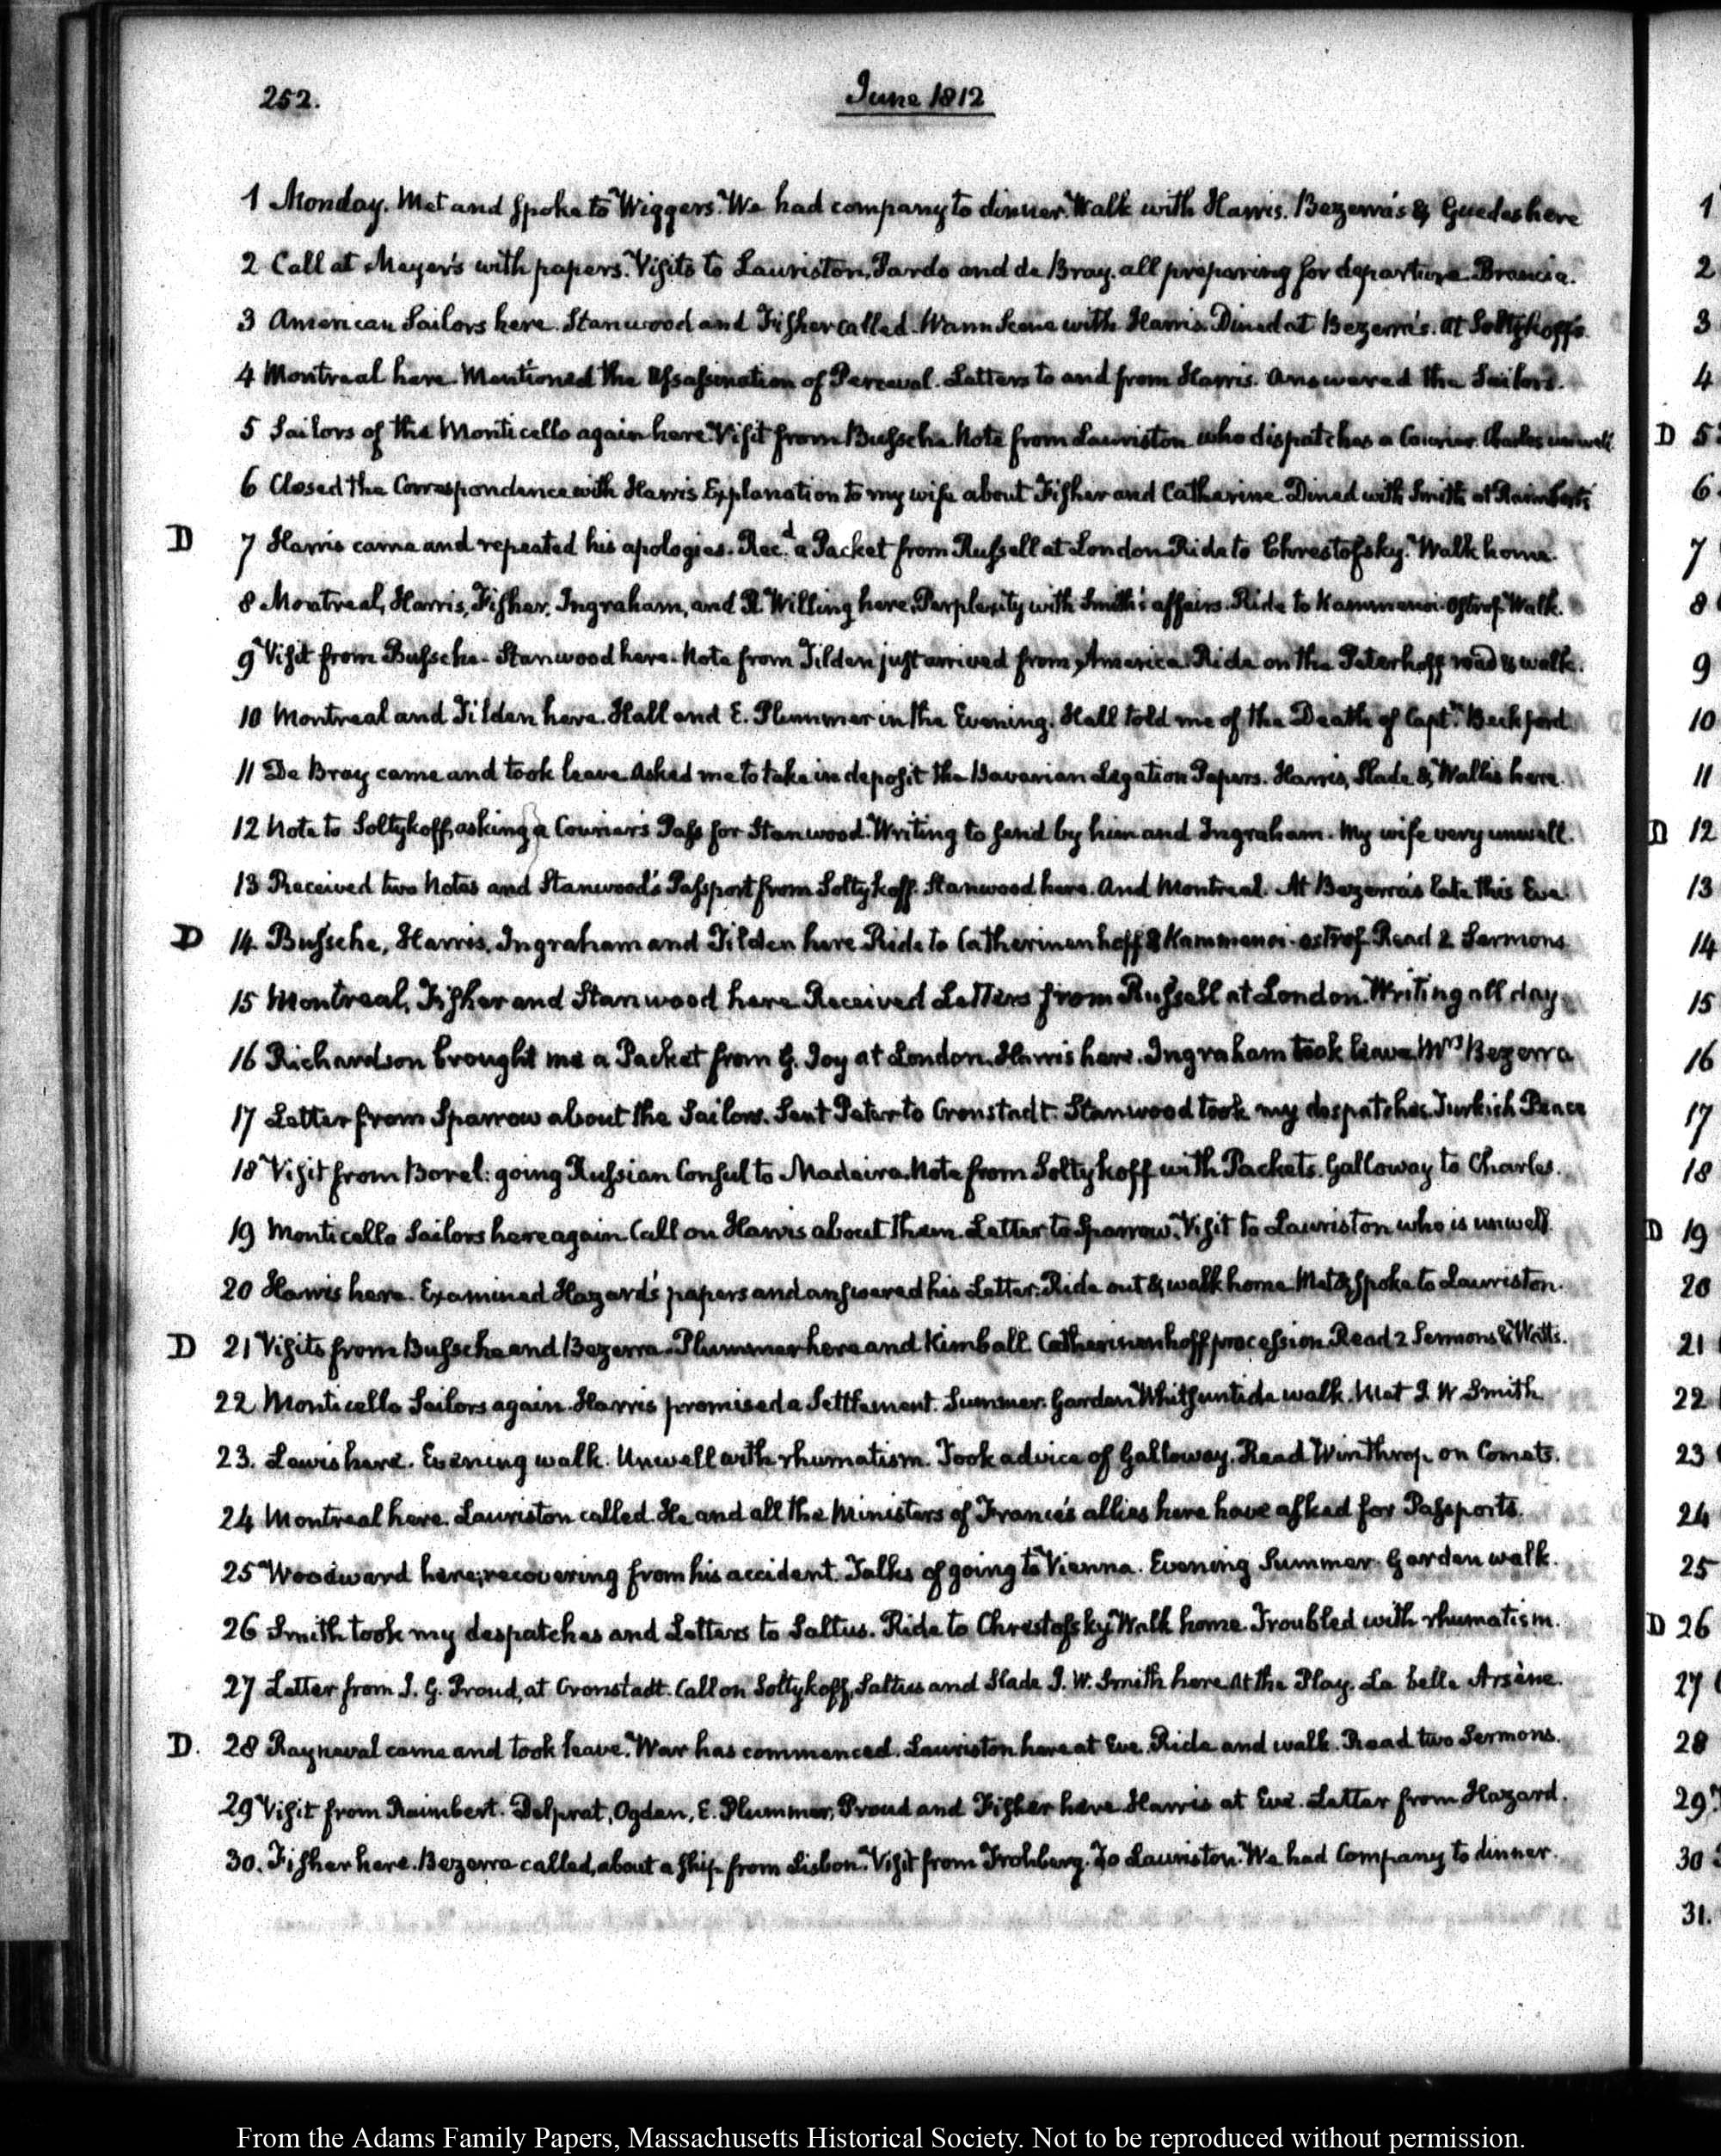 252.
June 1812
1 Monday. Met and spoke to Wiggers. We had company to dinner. Walk with Harris. Bezerra's & Guedes here
2 Call at Meyer's with papers. Visits to Lauriston, Pardo and de Bray. all preparing for departure. Brancia.
3 American Sailors here. Stanwood and Fisher called. Warm Scene with Harris. Dined at Bezerra's. at Soltykoff's.
4 Montreal here. Mentioned the Assassination of Perceval. Letters to and from Harris. Answered the Sailors.
5 Sailors of the Monticello again here. Visit from Bussche. Note from Lauriston who dispatches a Courier. Charles unwell.
6 Closed the Correspondence with Harris Explanation to my wife about Fisher and Catherine. Dined with Smith at Raimbert's
D 7 Harris came and repeated his apologies. Rec.d a Packet from Russell at London Ride to Chrestofsky. Walk home.
8 Montreal, Harris, Fisher, Ingraham, and R. Willing here. Perplexity with Smith's affairs. Ride to Kammenoi-ostrof. Walk.
9 Visit from Bussche. Stanwood here. Note from Tilden just arrived from America. Ride on the Peterhoff road & walk.
10 Montreal and Tilden here. Hall and E. Plummer in the Evening. Hall told me of the Death of Capt.n Beckford.
11 De Bray came and took leave. Asked me to take in deposit the Bavarian Legation Papers. Harris, Slade & Wallis here.
12 Note to Soltykoff, asking a Courier's Pass for Stanwood. Writing to send by him and Ingraham. My wife very unwell.
13 Received two Notes and Stanwood's Passport from Soltykoff. Stanwood here. And Montreal. At Bezerra's late this Eve.
D 14. Bussche, Harris, Ingraham and Tilden here Ride to Catherinenhoff & Kammenoi-ostrof. Read 2 Sermons.
15 Montreal, Fisher and Stanwood here. Received Letters from Russell at London. Writing all day.
16 Richardson brought me a Packet from G. Joy at London. Harris here. Ingraham took leave. Mrs Bezerra
17 Letter from Sparrow about the Sailors. Sent Peter to Cronstadt. Stanwood took my despatches. Turkish Peace
18 Visit from Borel: going Russian Consul to Madeira. Note from Soltykoff with Packets. Galloway to Charles.
19 Monticello Sailors here again. Call on Harris about them. Letter to Sparrow. Visit to Lauriston who is unwell.
20 Harris here. Examined Hazard's papers and answered his Letter. Ride out & walk home. Met & spoke to Lauriston.
D 21 Visits from Bussche and Bezerra. Plummer here and Kimball. Catherinenhoff procession. Read 2 Sermons & Watts.
22 Monticello Sailors again. Harris promised a Settlement. Summer. Garden Whitsuntide walk. Met J. W. Smith
23. Lewis here. Evening walk. Unwell with rhumatism. Took advice of Galloway. Read Winthrop on Comets.
24 Montreal here. Lauriston called. He and all the Ministers of France's allies here have asked for Passports.
25 Woodward here; recovering from his accident. Talks of going to Vienna. Evening Summer. Garden walk.
26 Smith took my despatches and Letters to Saltus. Ride to Chrestofsky. Walk home. Troubled with rhumatism.
27 Letter from J. G. Proud, at Cronstadt. Call on Soltykoff, Saltus and Slade. J. W. Smith here. At the Play. La belle Arsène.
D. 28 Rayneval came and took leave. War has commenced. Lauriston here at Eve. Ride and walk. Read two Sermons.
29 Visit from Raimbert. Delprat, Ogden, E. Plummer, Proud and Fisher here. Harris at Eve. Letter from Hazard.
30. Fisher here. Bezerra called, about a ship from Lisbon. Visit from Frohberg. To Lauriston. We had Company to dinner.
1
2
3
4
D 5
6
7
8
9
10
11
D 12
13
14
15
16
17
18
D 19
20
21
22
23
24
25
D 26
27
28
29
30
31.
From the Adams Family Papers, Massachusetts Historical Society. Not to be reproduced without permission.